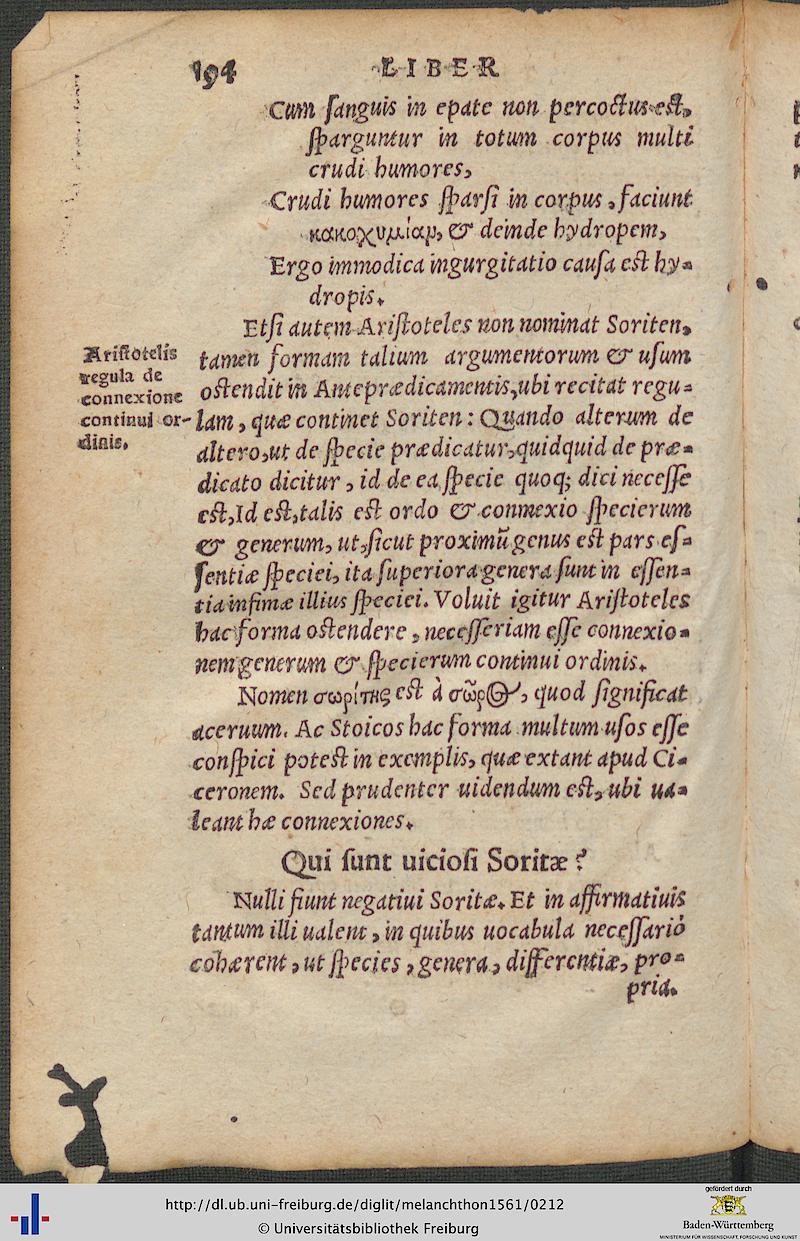 194
LIBER
Cum ſanguis in epate non percoctus eſt,
ſparguntur in totum corpus multi
crudi humores,
Crudi humores ſparſi in corpus, faciunt
κακοχυμίαμ, & deinde hydropem,
Ergo immodica ingurgitatio cauſa eſt hy-
dropis.
Etſi autem Ariſtoteles non nominat Soriten,
Ariſtotelis
regula de
connexione
continui or-
dinis.
tamen formam talium argumentorum & uſum
oſtendit in Anteprædicamentis, ubi recitat regu-
lam, quæ continet Soriten: Quando alterum de
altero, ut de ſpecie prædicatur, quidquid de præ-
dicato dicitur, id de ea ſpecie quoq; dici neceſſe
eſt, Id eſt, talis eſt ordo & connexio ſpecierum
& generum, ut, ſicut proximũ genus eſt pars eſ-
ſentiæ ſpeciei, ita ſuperiora genera ſunt in eſſen-
tia infimæ illius ſpeciei. Voluit igitur Ariſtoteles
hac forma oſtendere, neceſſeriam eſſe connexio-
nem generum & ſpecierum continui ordinis.
Nomen σωρίτης eſt à σῶρΘ, quod ſignificat
aceruum. Ac Stoicos hac forma multum uſos eſſe
conſpici poteſt in exemplis, quæ extant apud Ci-
ceronem. Sed prudenter uidendum eſt, ubi ua-
leant hæ connexiones.
Qui ſunt uicioſi Soritæ?
Nulli fiunt negatiui Soritæ. Et in affirmatiuis
tantum illi ualent, in quibus uocabula neceſſariò
cohærent, ut ſpecies, genera, differentiæ, pro-
pria.
http://dl.ub.uni-freiburg.de/diglit/melanchthon1561/0212
© Universitätsbibliothek Freiburg
gefördert durch
Baden-Württemberg
MINISTERIUM FÜR WISSENSCHAFT, FORSCHUNG UND KUNST